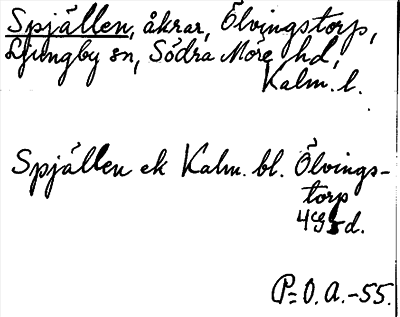 Spjällen, åkrar, Ölvingstorp,
Ljungby sn, Södra Möre hd,
Kalm. l.
Spjällen ek Kalm. bl. Ölvings-
torp
4g5d.
P=O. A. -55.